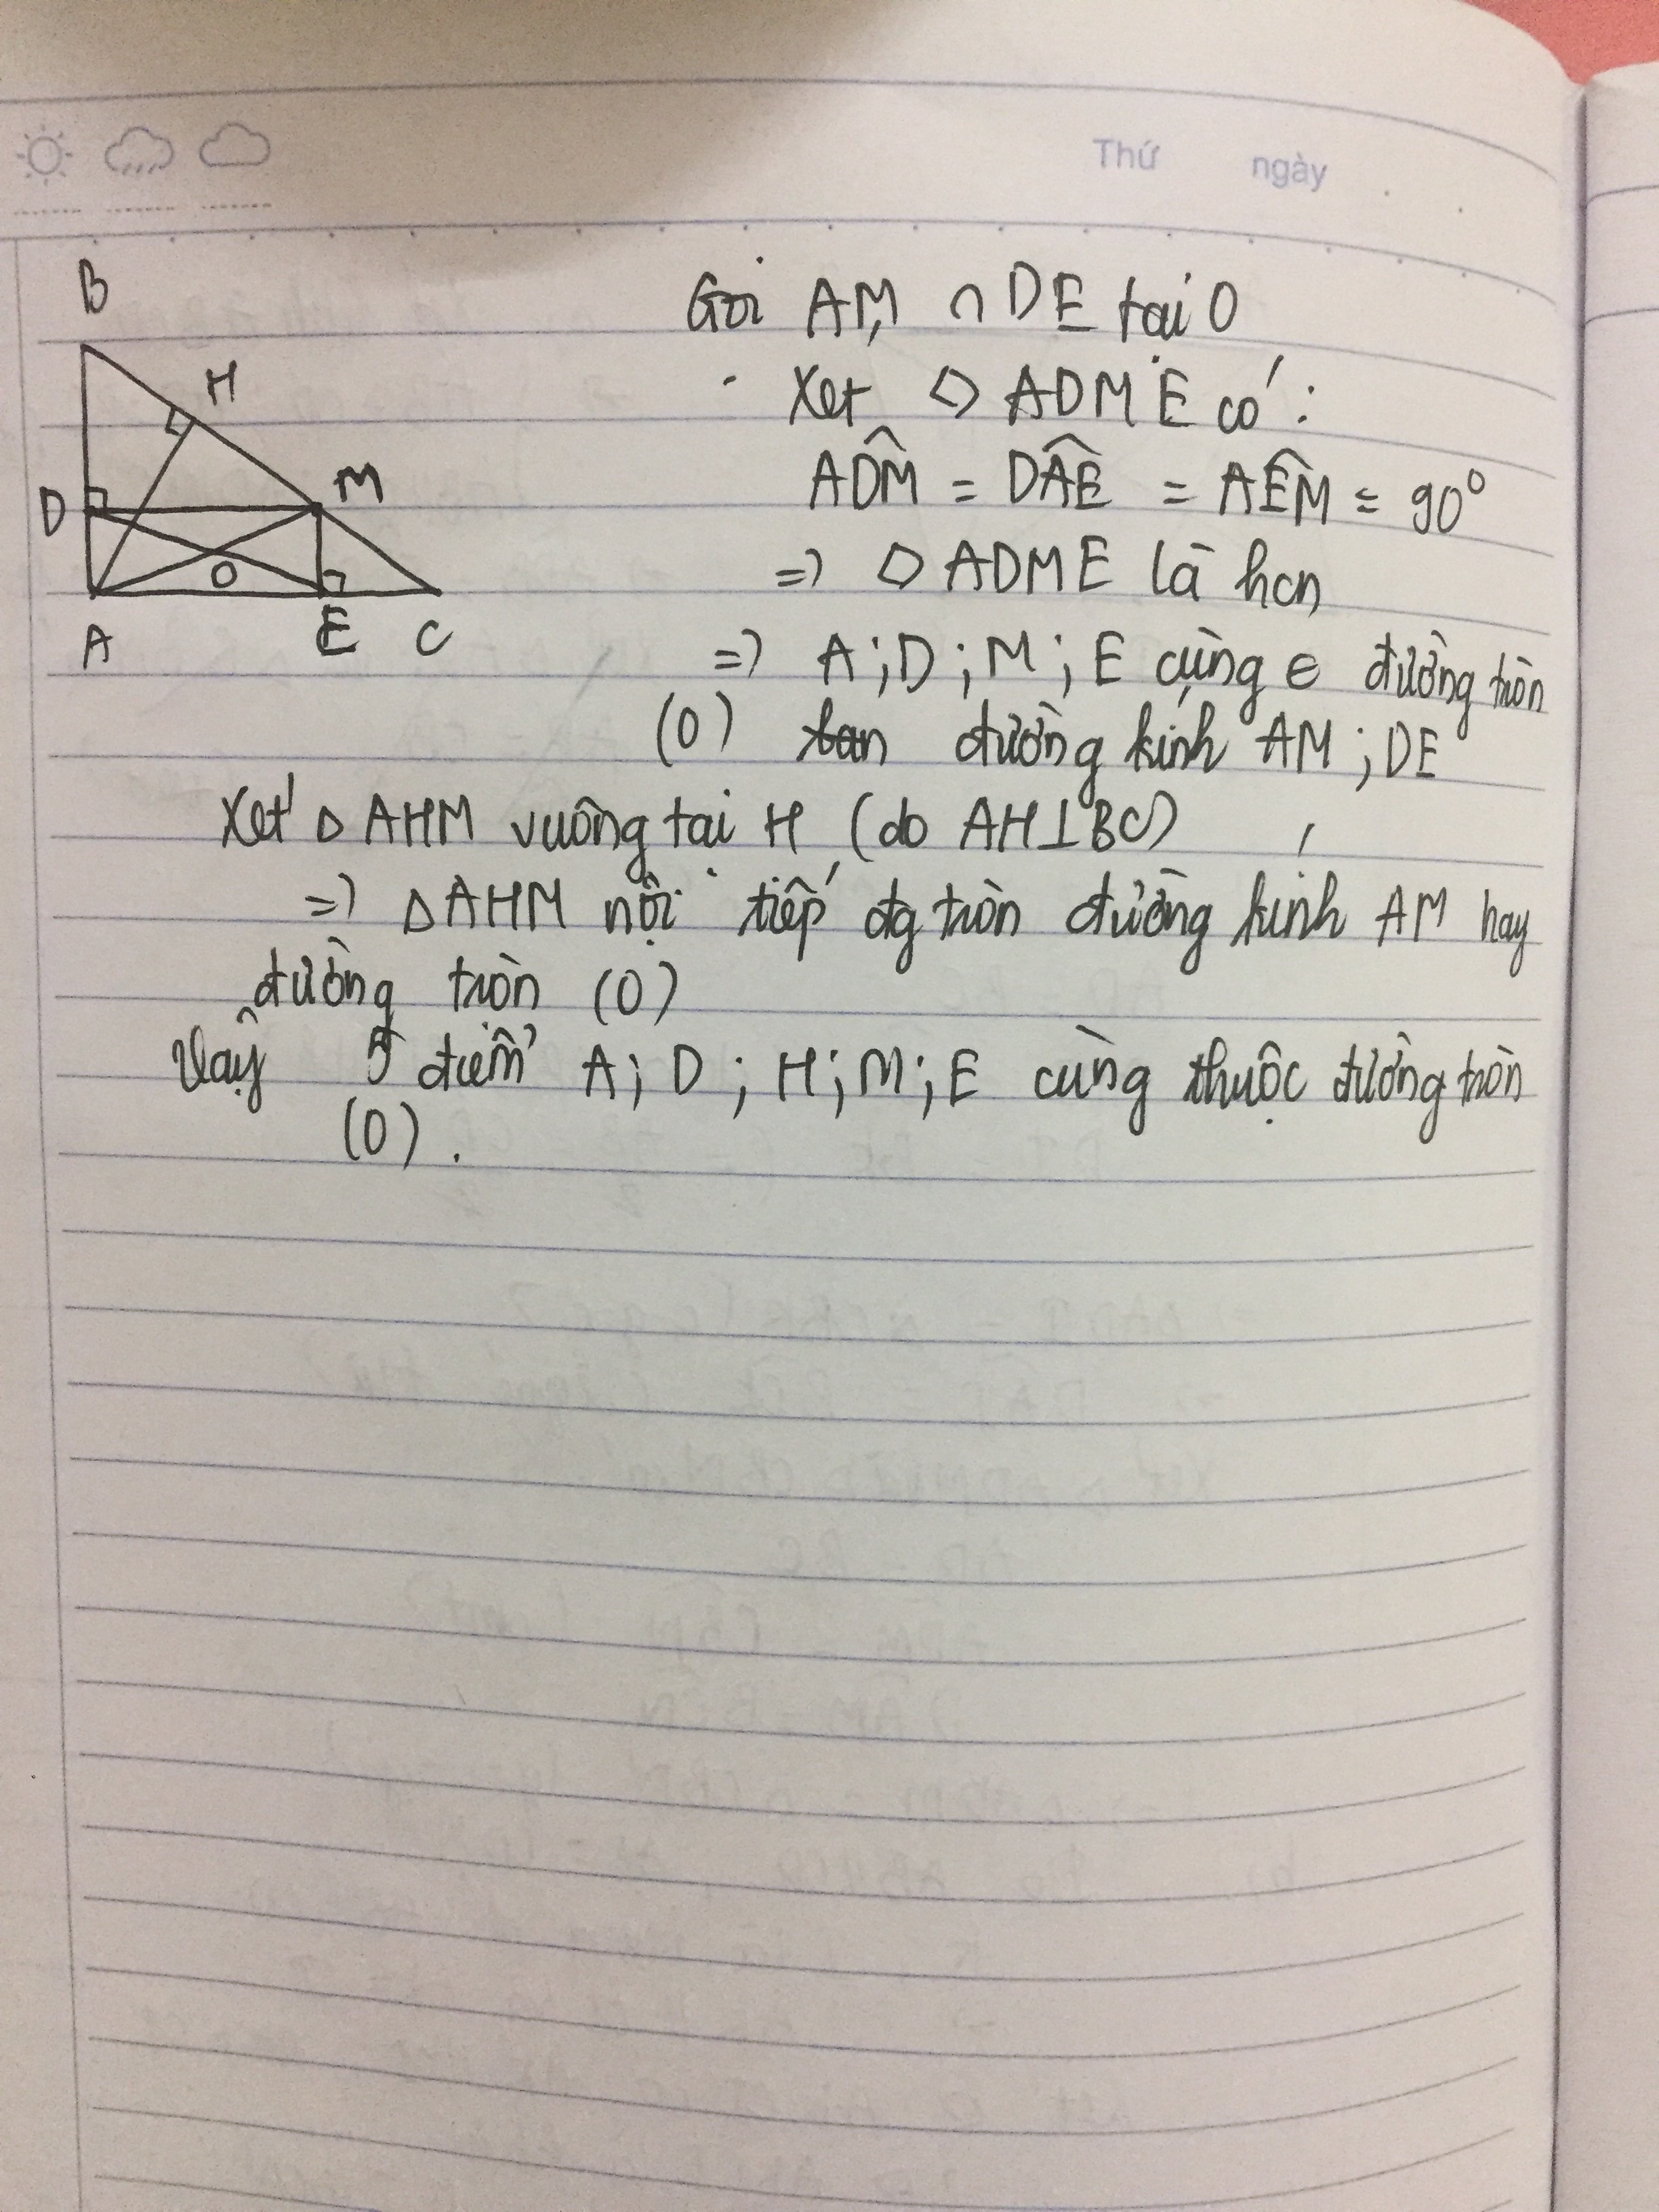 Thứ ngày
B
H
M
D
O
A
E
C
Gọi AM ∩ DE tại O
Xét ◇ ADME có :
ADM̂ = DÂE = AÊM = 90°
=> ◇ ADME là hcn
=> A ; D ; M ; E cùng ∈ đường tròn
(O) đường kính AM ; DE
Xét △ AHM vuông tại H (do AH⊥BC)
=> △AHM nội tiếp đg tròn đường kính AM hay
đường tròn (O)
Vậy 5 điểm A; D ; H; M; E cùng thuộc đường tròn
(O) .